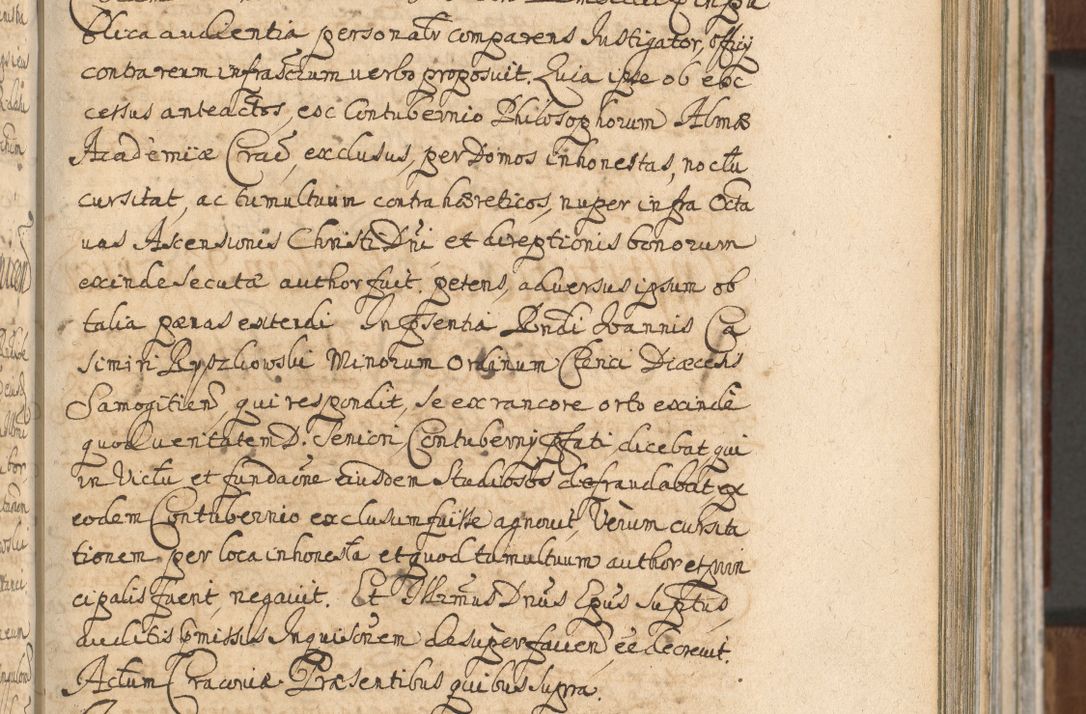 blica audientia personalr comparens Instigator, Officij
contra reum infrascrtum verbo proposuit. Quia ipse ob exc
cessus anteactos, exc Contubernio Philosophorum Almæ
Academiæ Crac, exclusus, per Domos inhonestas, noctu
cursitat, ac tumultuum contra hæreticos, nuper infra Octa
uas Ascensionis Christi Dni et direptionis bonorum
exinde secutæ author fuit. petens, aduersus ipsum ob
talia pœnas extendi In psentia Rndi Ioannis Ca
simiri Ryszkowski Minorum Ordinum Clerici Diæcesis
Samogitien, qui respondit, se ex rancore orto exinde
quod veritatem D. Seniori, Contubernij pfati, dicebat qui
in Victu et fundaone eiusdem Studiosos defraudabat ex
eodem Contubernio exclusum fuisse agnouit, Verum cursita
tionem, per loca inhonesta et quod tumultuum author et prin
cipalis fuerit, negauit. Et Illrmus Dnus Epus Suptus,
auditis pmissis Inquisonem desuper faciend ee decreuit.
Actum Cracouiæ Præsentibus quibus supra.